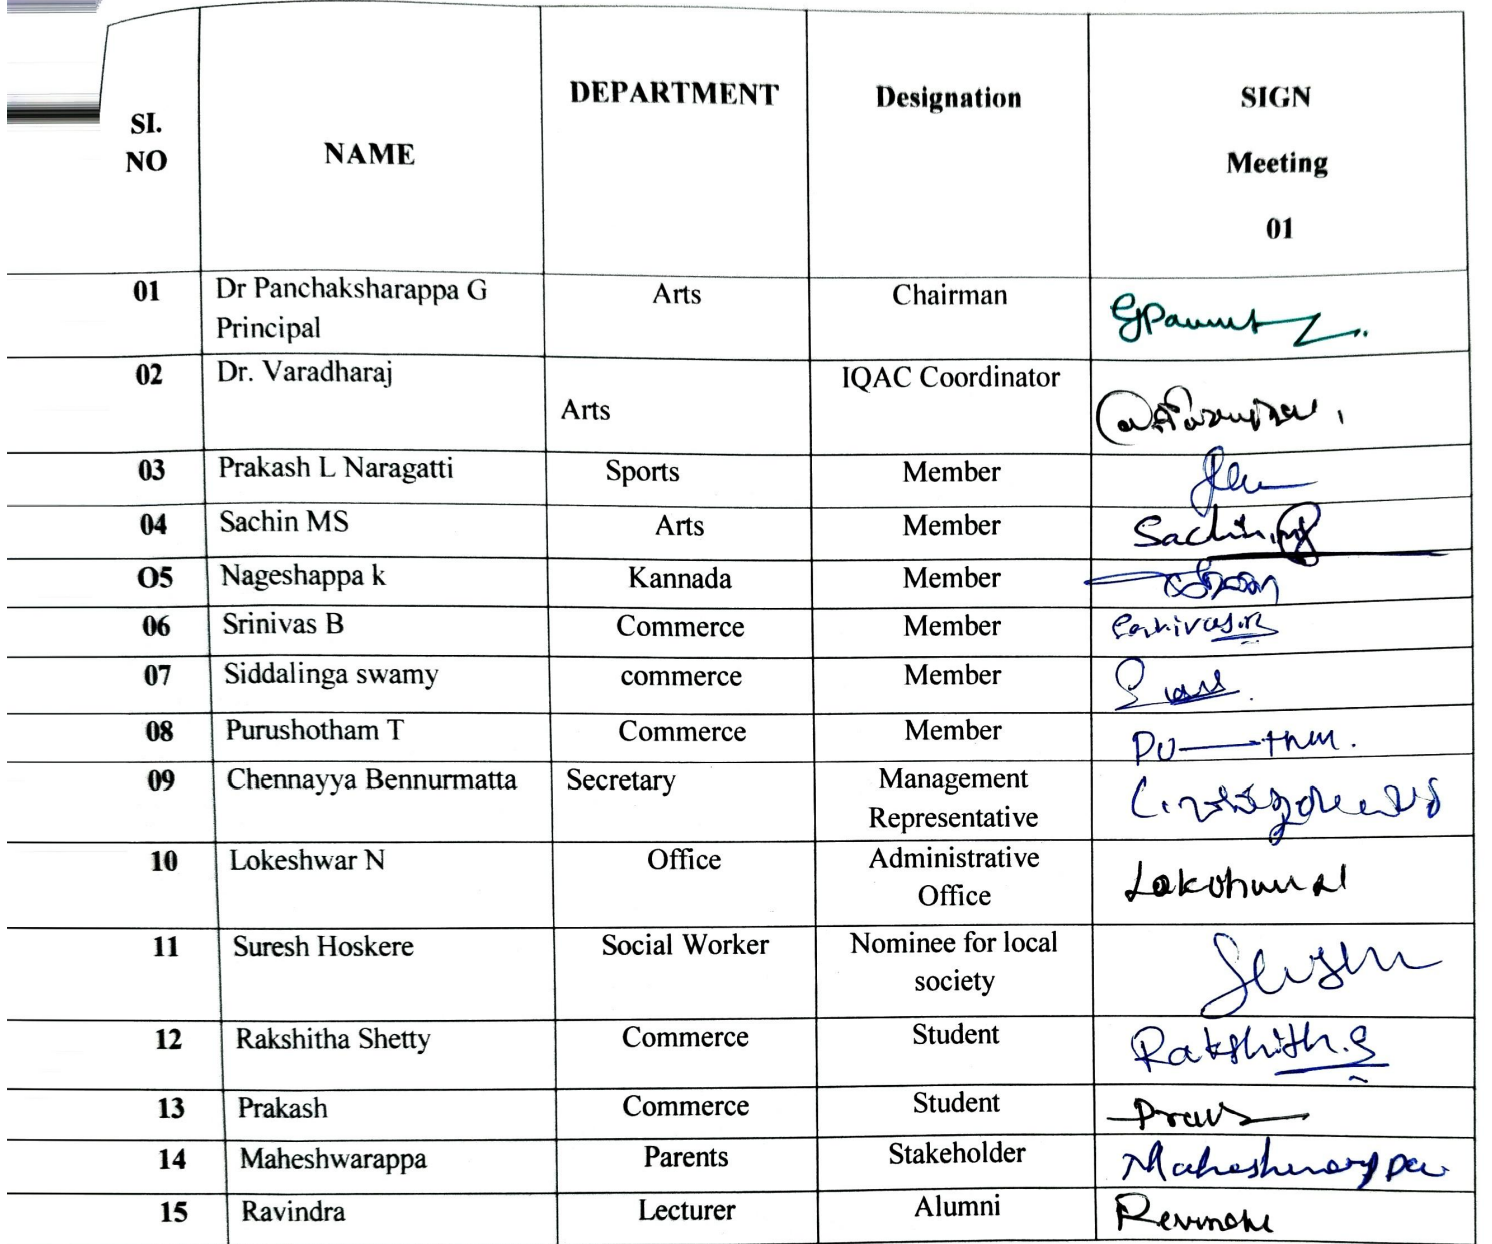 SI.
NO
NAME
DEPARTMENT
Designation
SIGN
Meeting
01
01 Dr Panchaksharappa G Arts Chairman
Principal
02 Dr. Varadharaj Arts IQAC Coordinator
03 Prakash L Naragatti Sports Member
04 Sachin MS Arts Member Sachin
O5 Nageshappa k Kannada Member
06 Srinivas B Commerce Member
07 Siddalinga swamy commerce Member
08 Purushotham T Commerce Member
09 Chennayya Bennurmatta Secretary Management
Representative
10 Lokeshwar N Office Administrative
Office
11 Suresh Hoskere Social Worker Nominee for local
society
12 Rakshitha Shetty Commerce Student Rakshith.S
13 Prakash Commerce Student
14 Maheshwarappa Parents Stakeholder
15 Ravindra Lecturer Alumni